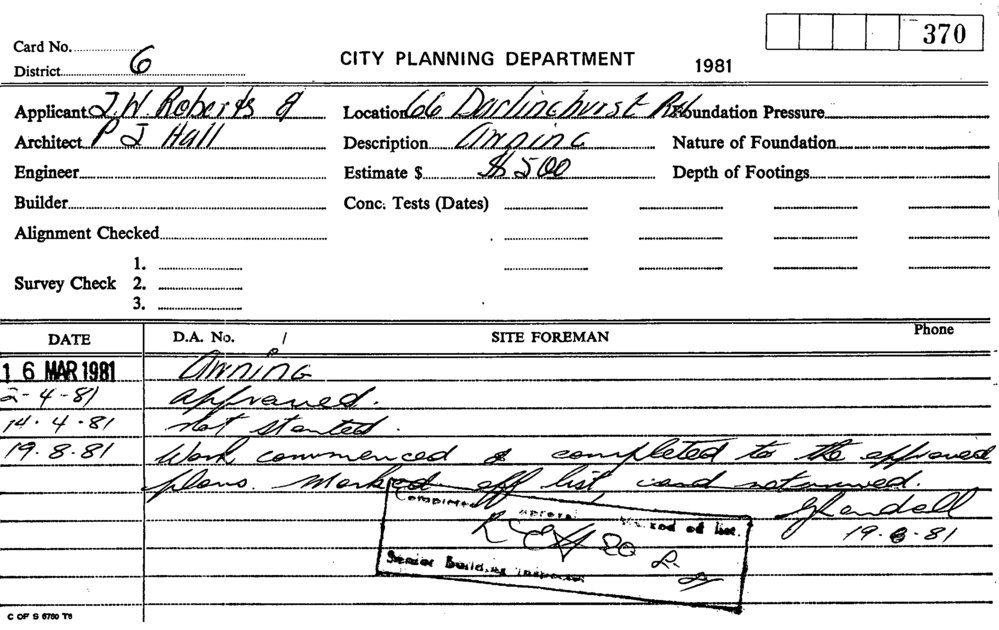 370
Card No.
District 6
CITY PLANNING DEPARTMENT
1981
Applicant J.W. Roberts & Location 66 Darlinghurst Rd Foundation Pressure
Architect P J Hall Description Awning Nature of Foundation
Engineer Estimate $ $500 Depth of Footings
Builder Conc. Tests (Dates)
Alignment Checked
1.
Survey Check 2.
3.
DATE D.A. No. / SITE FOREMAN Phone
16 MAR 1981 Awning
2-4-81 approved.
14.4.81 Not started.
19.8.81 Work commenced & completed to the approved
plans. Marked off list, card returned.
19.8.81
Completed of list.
Senior Building Inspector
C OF S 6760 T6